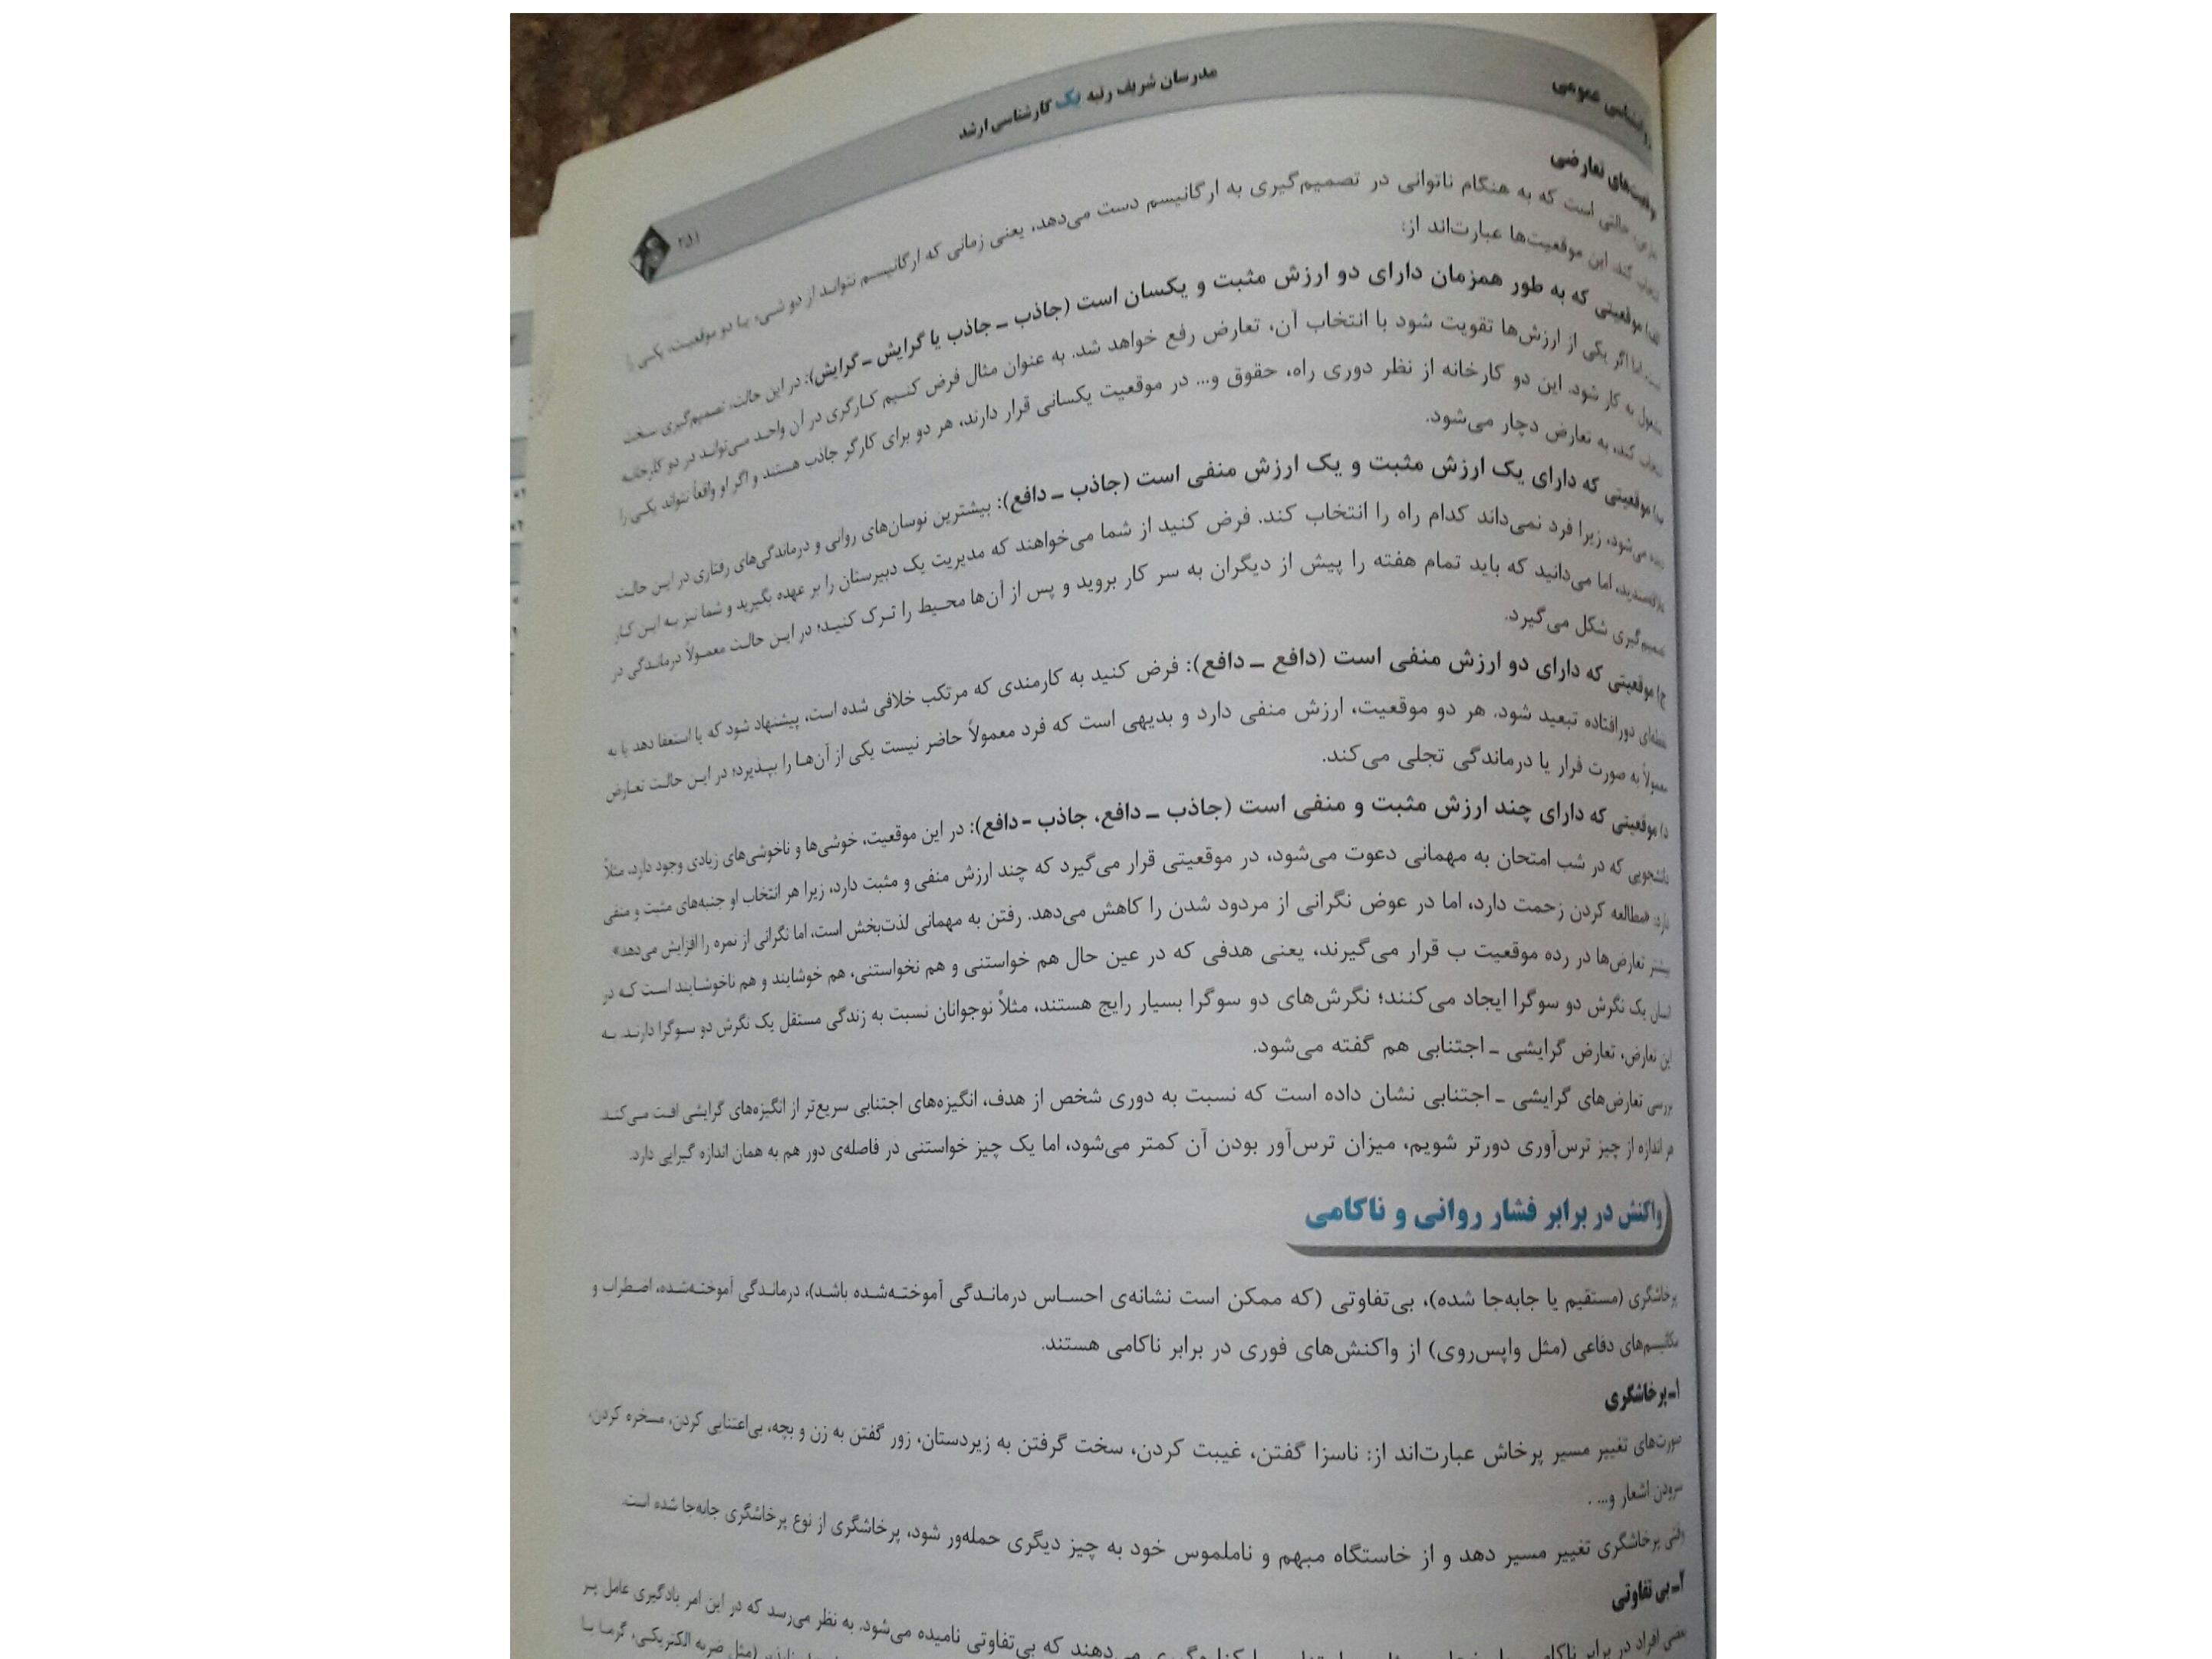 روانشناسی عمومی
مدرسان شریف رتبه یک کارشناسی ارشد
موقعیت‌های تعارضی
حالتی است که به هنگام ناتوانی در تصمیم‌گیری به ارگانیسم دست می‌دهد، یعنی زمانی که ارگانیسم نتواند از دو شیء یا دو موقعیت، یکی را
انتخاب کند. این موقعیت‌ها عبارت‌اند از:
الف) موقعیتی که به طور همزمان دارای دو ارزش مثبت و یکسان است (جاذب ـ جاذب یا گرایش ـ گرایش): در این حالت، تصمیم‌گیری سخت
است. اما اگر یکی از ارزش‌ها تقویت شود با انتخاب آن، تعارض رفع خواهد شد. به عنوان مثال فرض کنیم کارگری در آن واحد می‌تواند در دو کارخانه
مشغول به کار شود. این دو کارخانه از نظر دوری راه، حقوق و... در موقعیت یکسانی قرار دارند، هر دو برای کارگر جاذب هستند و اگر او واقعاً نتواند یکی را
انتخاب کند، به تعارض دچار می‌شود.
ب) موقعیتی که دارای یک ارزش مثبت و یک ارزش منفی است (جاذب ـ دافع): بیشترین نوسان‌های روانی و درماندگی‌های رفتاری در این حالت
دیده می‌شود، زیرا فرد نمی‌داند کدام راه را انتخاب کند. فرض کنید از شما می‌خواهند که مدیریت یک دبیرستان را بر عهده بگیرید و شما نیز به این کار
علاقه‌مندید، اما می‌دانید که باید تمام هفته را پیش از دیگران به سر کار بروید و پس از آن‌ها محیط را ترک کنید؛ در این حالت معمولاً درماندگی در
تصمیم‌گیری شکل می‌گیرد.
ج) موقعیتی که دارای دو ارزش منفی است (دافع ـ دافع): فرض کنید به کارمندی که مرتکب خلافی شده است، پیشنهاد شود که یا استعفا دهد یا به
نقطه‌ای دورافتاده تبعید شود. هر دو موقعیت، ارزش منفی دارد و بدیهی است که فرد معمولاً حاضر نیست یکی از آن‌ها را بپذیرد؛ در این حالت تعارض
معمولاً به صورت فرار یا درماندگی تجلی می‌کند.
د) موقعیتی که دارای چند ارزش مثبت و منفی است (جاذب ـ دافع، جاذب - دافع): در این موقعیت، خوشی‌ها و ناخوشی‌های زیادی وجود دارد، مثلاً
دانشجویی که در شب امتحان به مهمانی دعوت می‌شود، در موقعیتی قرار می‌گیرد که چند ارزش منفی و مثبت دارد، زیرا هر انتخاب او جنبه‌های مثبت و منفی
دارد: «مطالعه کردن زحمت دارد، اما در عوض نگرانی از مردود شدن را کاهش می‌دهد. رفتن به مهمانی لذت‌بخش است، اما نگرانی از نمره را افزایش می‌دهد».
بیشتر تعارض‌ها در رده موقعیت ب قرار می‌گیرند، یعنی هدفی که در عین حال هم خواستنی و هم نخواستنی، هم خوشایند و هم ناخوشایند است که در
انسان یک نگرش دو سوگرا ایجاد می‌کنند؛ نگرش‌های دو سوگرا بسیار رایج هستند، مثلاً نوجوانان نسبت به زندگی مستقل یک نگرش دو سوگرا دارند. به
این تعارض، تعارض گرایشی ـ اجتنابی هم گفته می‌شود.
بررسی تعارض‌های گرایشی ـ اجتنابی نشان داده است که نسبت به دوری شخص از هدف، انگیزه‌های اجتنابی سریع‌تر از انگیزه‌های گرایشی افت می‌کند.
هر اندازه از چیز ترس‌آوری دورتر شویم، میزان ترس‌آور بودن آن کمتر می‌شود، اما یک چیز خواستنی در فاصله‌ی دور هم به همان اندازه گیرایی دارد.
واکنش در برابر فشار روانی و ناکامی
پرخاشگری (مستقیم یا جابه‌جا شده)، بی‌تفاوتی (که ممکن است نشانه‌ی احساس درماندگی آموخته‌شده باشد)، درماندگی آموخته‌شده، اضطراب و
مکانیسم‌های دفاعی (مثل واپس‌روی) از واکنش‌های فوری در برابر ناکامی هستند.
۱ـ پرخاشگری
صورت‌های تغییر مسیر پرخاش عبارت‌اند از: ناسزا گفتن، غیبت کردن، سخت گرفتن به زیردستان، زور گفتن به زن و بچه، بی‌اعتنایی کردن، مسخره کردن،
سرودن اشعار و... .
وقتی پرخاشگری تغییر مسیر دهد و از خاستگاه مبهم و ناملموس خود به چیز دیگری حمله‌ور شود، پرخاشگری از نوع پرخاشگری جابه‌جا شده است.
۲ـ بی‌تفاوتی
بعضی افراد در برابر ناکامی کناره‌گیری می‌دهند که بی‌تفاوتی نامیده می‌شود. به نظر می‌رسد که در این امر یادگیری عامل پر
(مثل ضربه الکتریکی، گرما یا